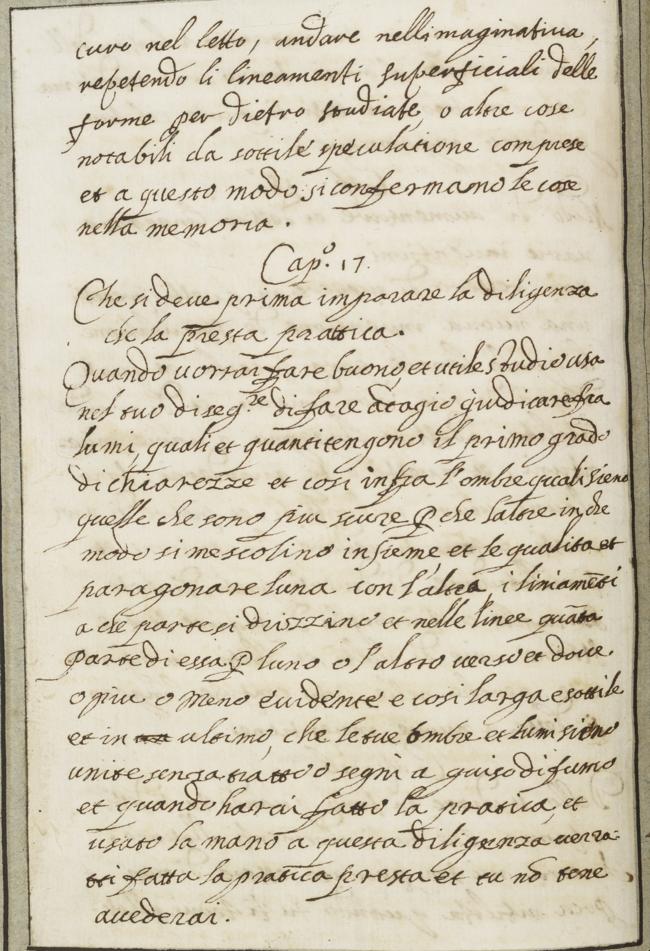 curo nel letto, andare nell imaginativa,
repetendo li lineamenti superficiali delle
forme per dietro studiate, o altre cose
notabili da sottile speculatione comprese
et a questo modo si confermano le cose
nella memoria.
Cap.º 17.
Che si deve prima imparare la diligenza
che la presta prattica.
Quando vorrai fare buono, et utile studio usa
nel tuo diseg.re di fare adagio giudicare fra
lumi, quali et quanti tengono il primo grado
di chiarezze et cosi infra l'ombre quali sieno
quelle che sono piu scure ꝑ che l'altre in che
modo si mescolino insieme, et le qualita et
paragonare luna con l'altra, i liniamēti
a che parte si drizzino et nelle linee quāta
parte di essa ꝑ luno o l'altro verso et dove
o piu o meno evidente e cosi larga e sottile
et in ultimo, che le tue ombre et lumi sieno
unite senza tratto o segni a guiso di fumo
et quando harai fatto la pratica, et
usato la mano a questa diligenza verra
tti fatta la pratica presta et tu nō tene
avederai.